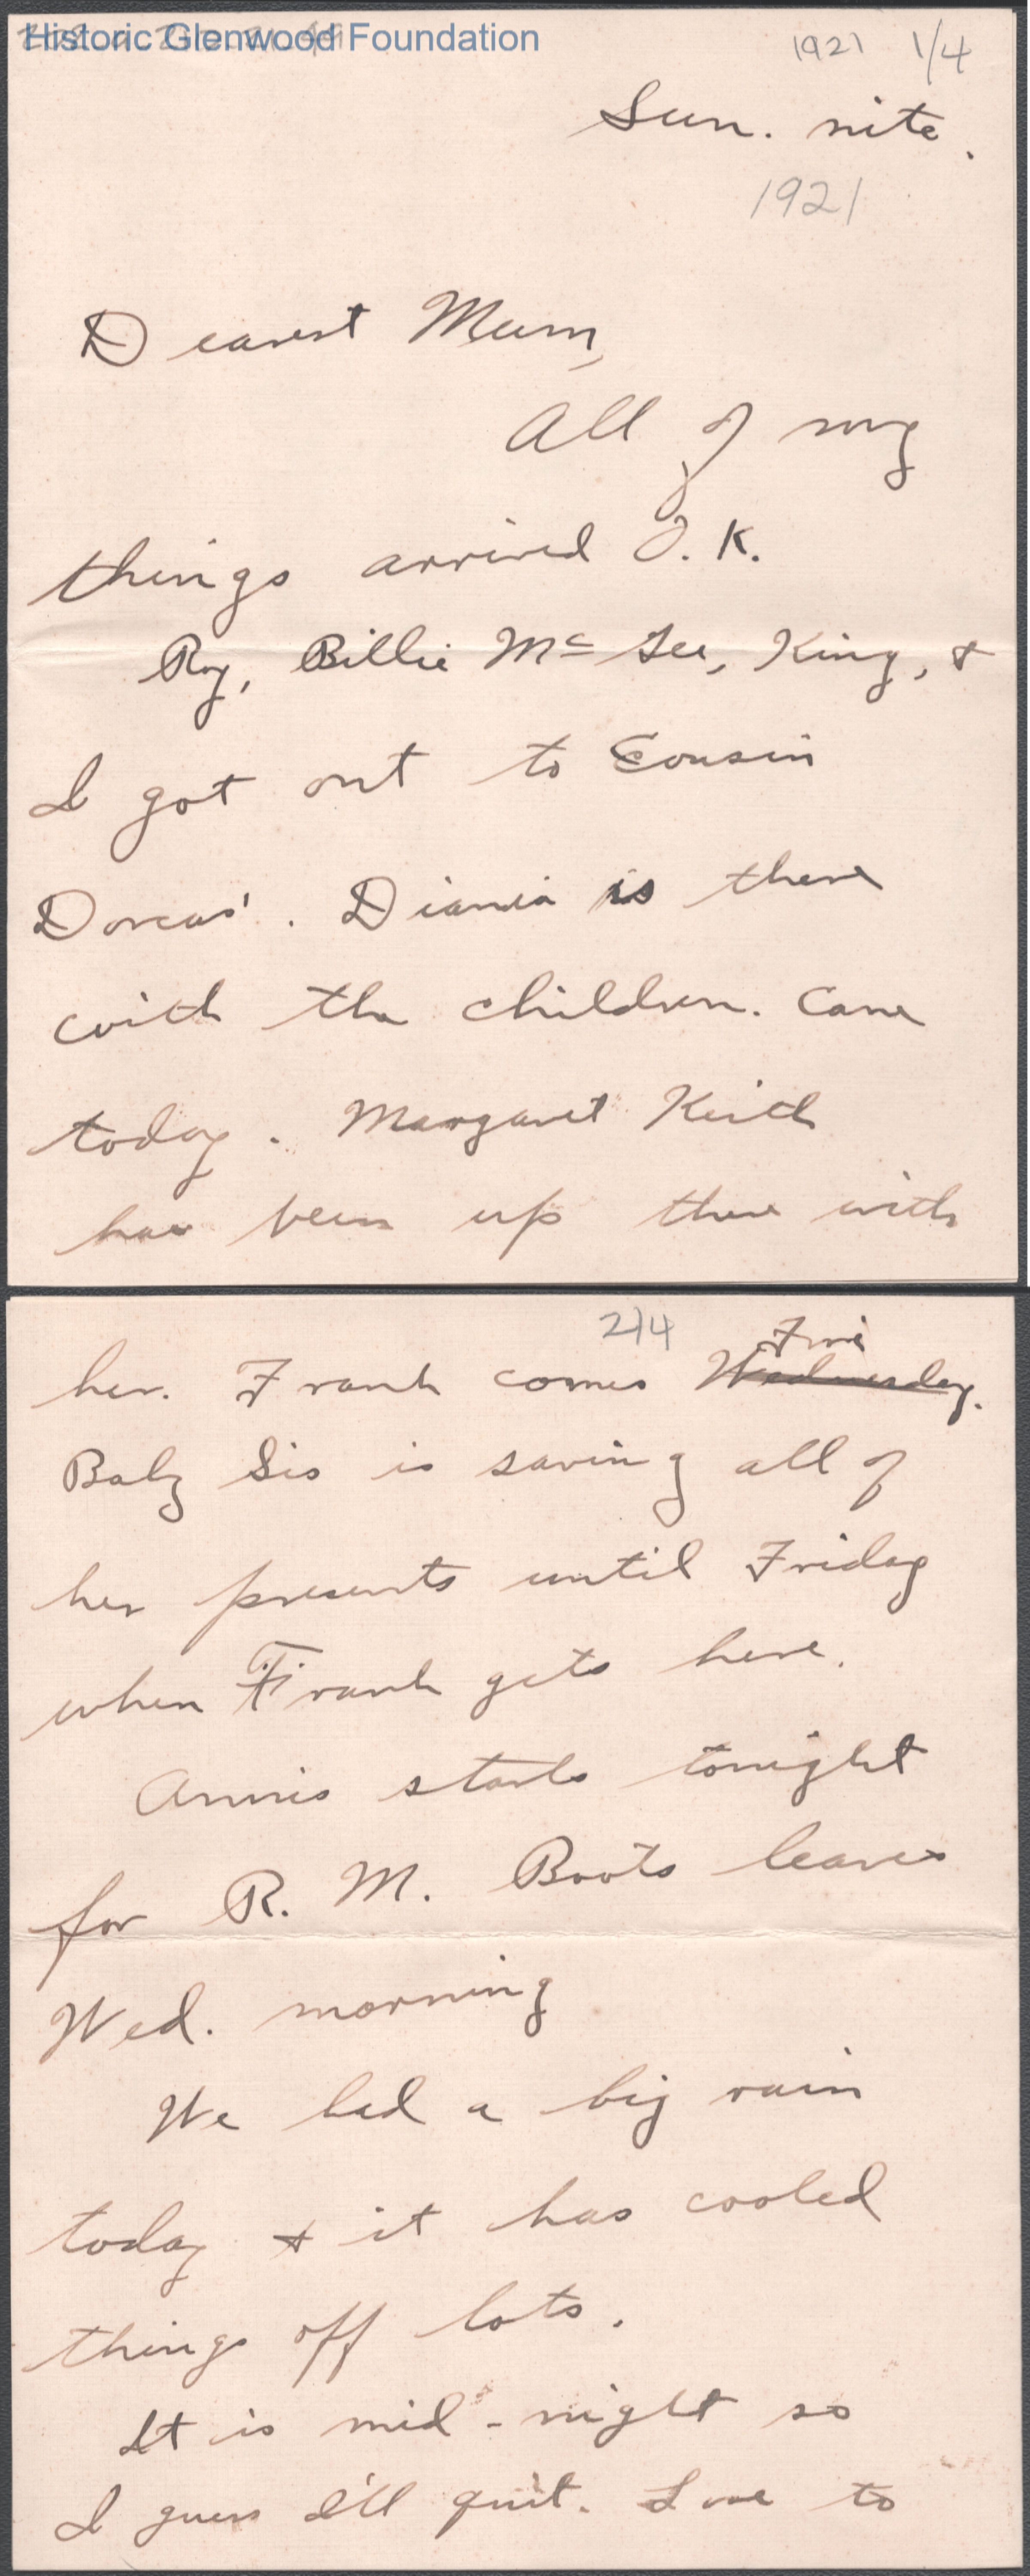 Historic Glenwood Foundation
1921 1/4
Sun. nite.
1921
Dearest Mum,
All of my
things arrived O.K.
Roy, Billie Mc Gee, King, &
I got out to Cousin
Dorcas'. Diania is there
with the children. Came
today. Margaret Keith
has been up there with
2/4
Fri
her. Frank comes Wednesday.
Baby Sis is saving all of
her presents until Friday
when Frank gets here.
Annis starts tonight
for R. M. Boots leaves
Wed. morning
We had a big rain
today & it has cooled
things off lots.
It is mid-night so
I guess I'll quit. Love to